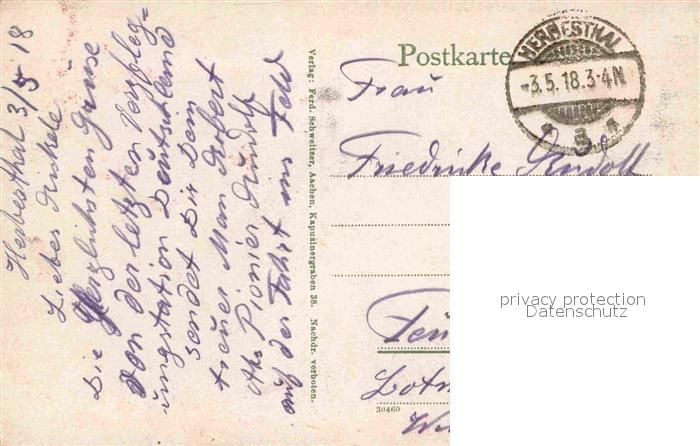 Herbesthal 3/5 18
Liebes
Die Herzlichsten Grüse
von der letzten Verpfleg-
ungstation Deutschland
sendet Dir Dein
treuer Man Robert
Pionier Rudolf
auf der Fahrt ins Feld
Verlag: Ferd. Schweitzer, Aachen, Kapuzinergraben 38. Nachdr. verboten.
Postkarte
HERBESTHAL
-3.5.18.3-4N
1 a 1
Frau
Friedricke Rudolf
30460
privacy protection
Datenschutz